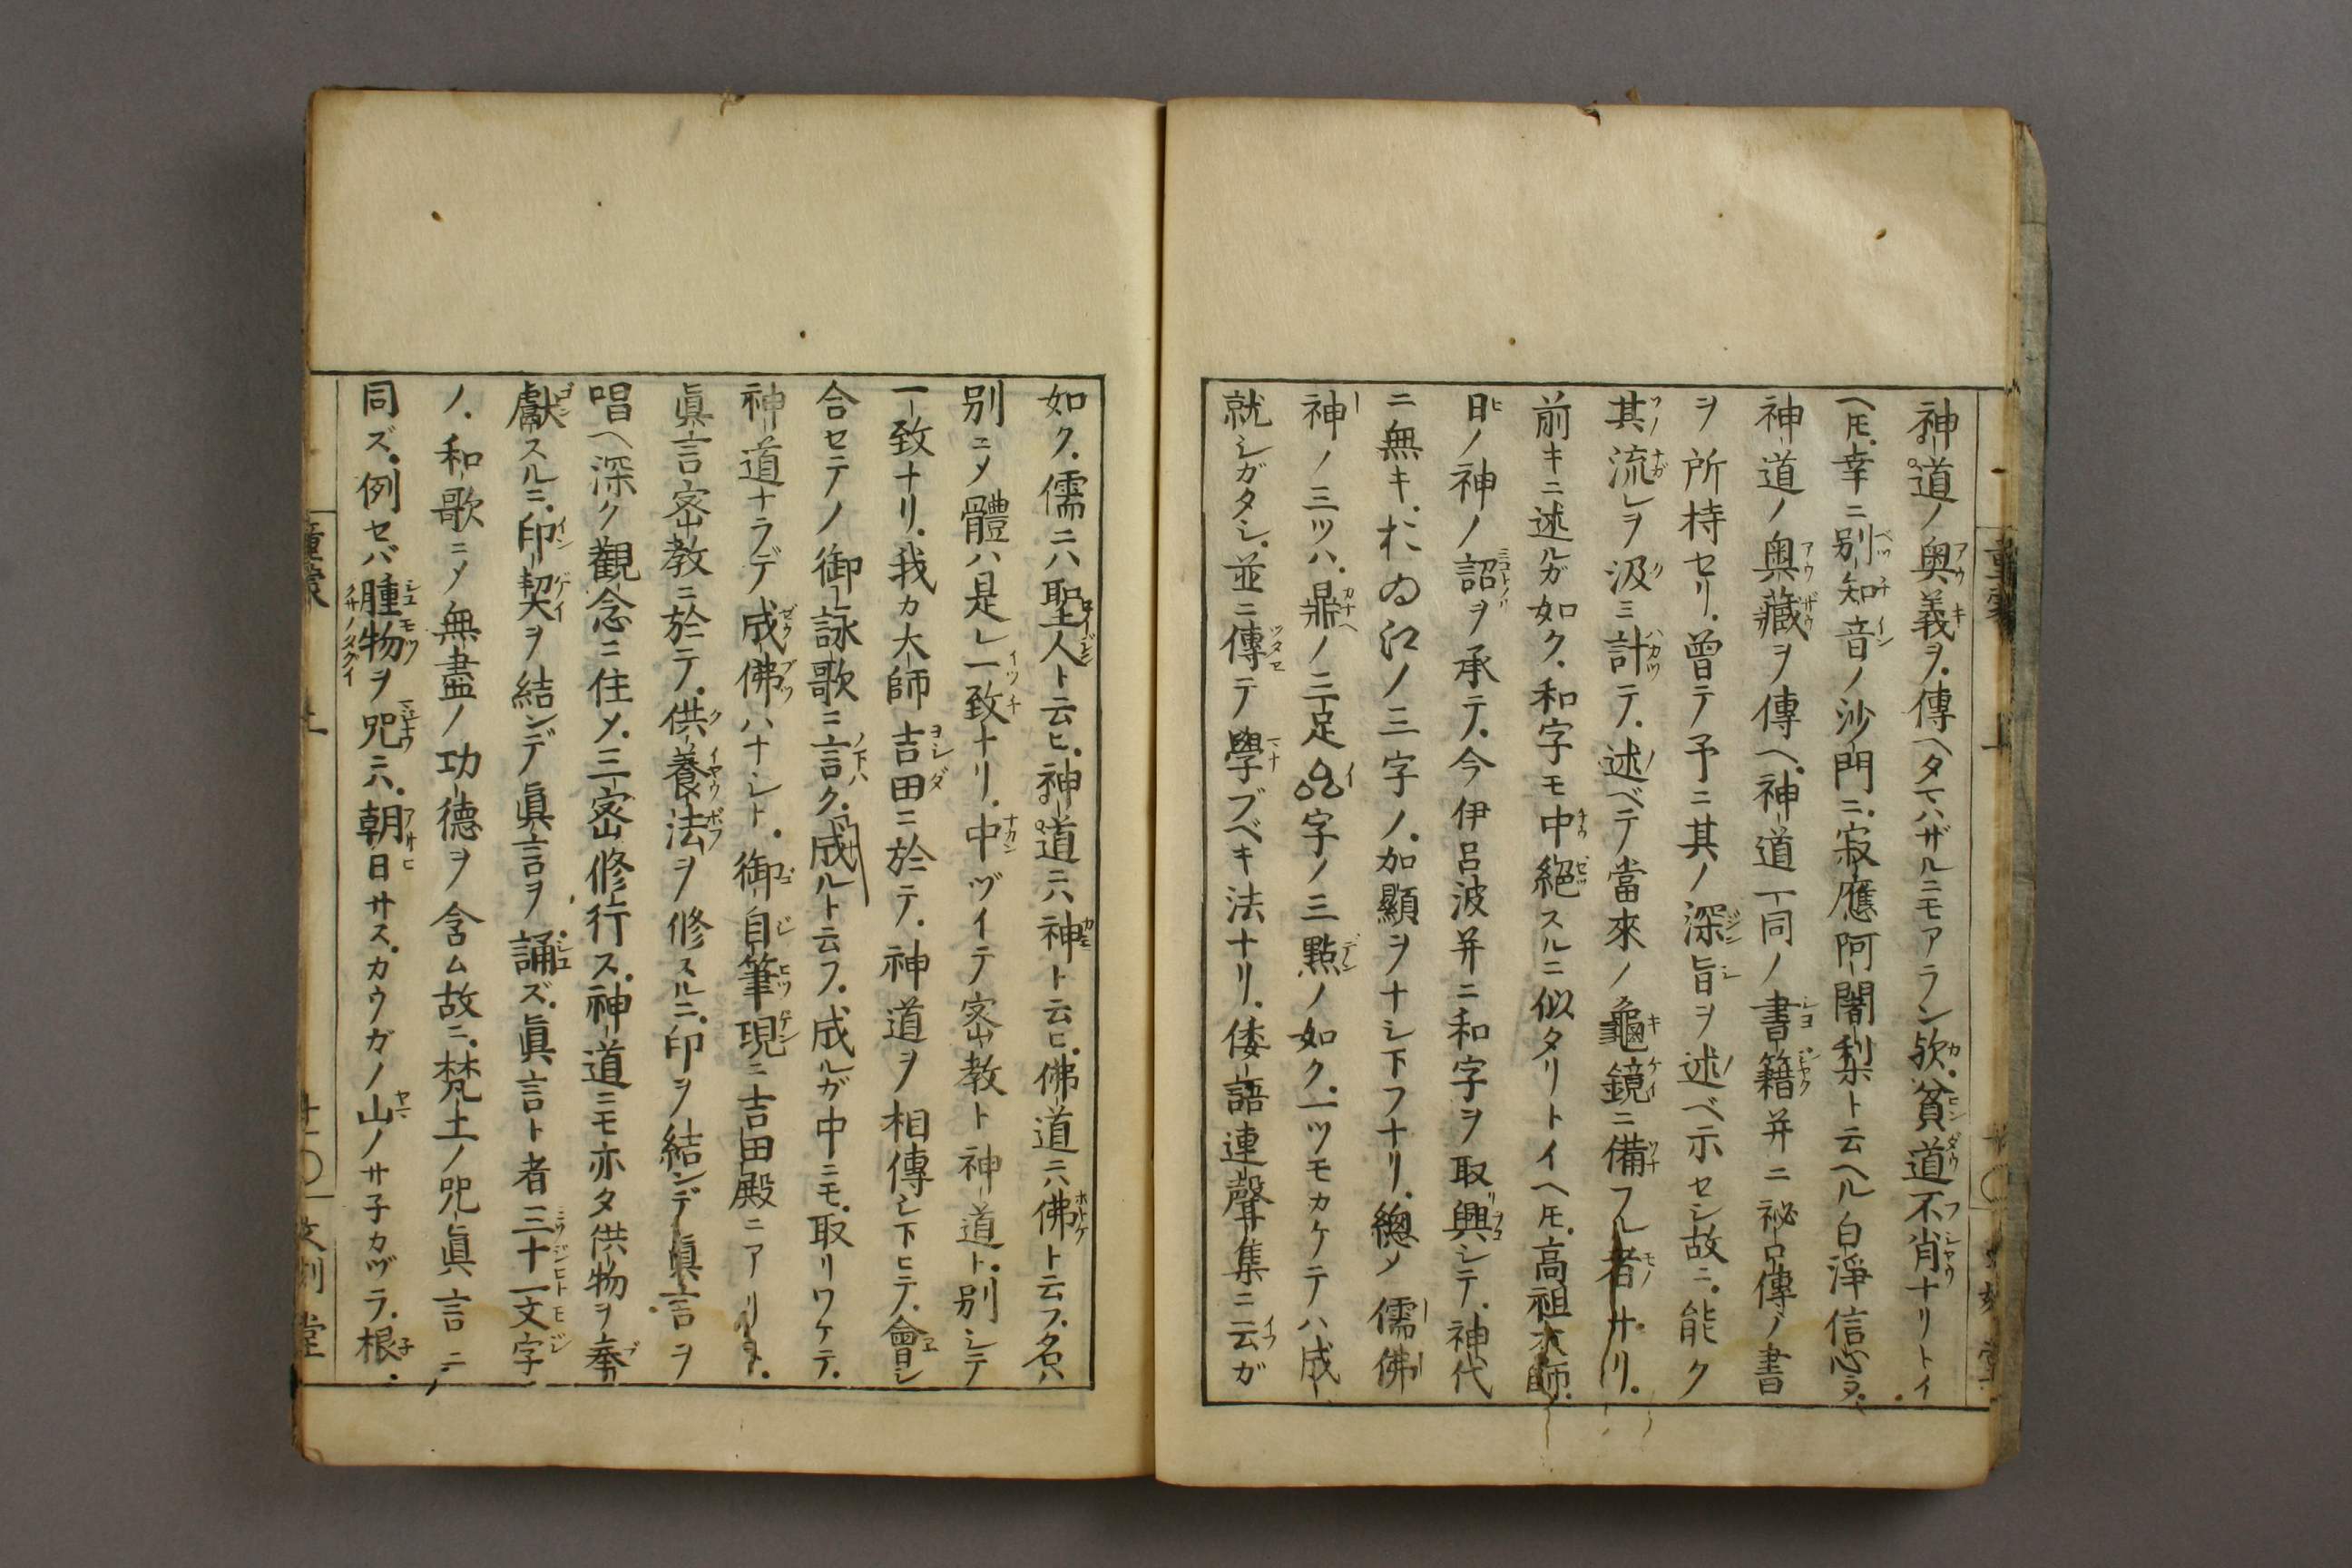 神道ノ奥義ヲ傳ヘタマハザルニモアラン欤貧道不肖ナリトイ
ヘ𪜈幸ニ別知音ノ沙門ニ寂應阿闍梨ト云ヘル白淨信心ヲ
神道ノ奥藏ヲ傳ヘ神道一同ノ書籍并ニ祕傳ノ書
ヲ所持セリ曾テ予ニ其ノ深旨ヲ述ベ示セシ故ニ能ク
其流レヲ汲ミ計テ述ベテ當來ノ龜鏡ニ備フル者ナリ
前キニ述ルガ如ク和字モ中絕スルニ似タリトイヘ𪜈高祖大師
日ノ神ノ詔ヲ承テ今伊呂波并ニ和字ヲ取興シテ神代
ニ無キおゐ江ノ三字ノ加顯ヲナシ下フナリ總ノ儒佛
神ノ三ツハ鼎ノ三足字ノ三點ノ如ク一ツモカケテハ成
就シガタシ並ニ傳テ學ブベキ法ナリ倭語連聲集ニ云ガ
如ク儒ニハ聖人ト云ヒ神道ニハ神ト云ヒ佛道ニハ佛ト云フ名ハ
別ニメ體ハ是レ一致ナリ中ヅイテ密教ト神道ト別シテ
一致ナリ我カ大師吉田ニ於テ神道ヲ相傳シ下ヒテ會シ
合セテノ御詠歌ニ言ク成ルト云フ成ルガ中ニモ取リワケテ
神道ナラデ成佛ハナシト御自筆現ニ吉田殿ニアリト
眞言密教ニ於テ供養法ヲ修スルニ印ヲ結ンデ眞言ヲ
唱ヘ深ク觀念ニ住メ三密修行ス神道ニモ亦タ供物ヲ奉
獻スルニ印契ヲ結ンデ眞言ヲ誦ズ眞言ト者三十一文字
ノ和歌ニメ無盡ノ功德ヲ含ム故ニ梵土ノ咒眞言ニ
同ズ例セバ腫物ヲ咒ニハ朝日サスカウガノ山ノサ子カヅラ根